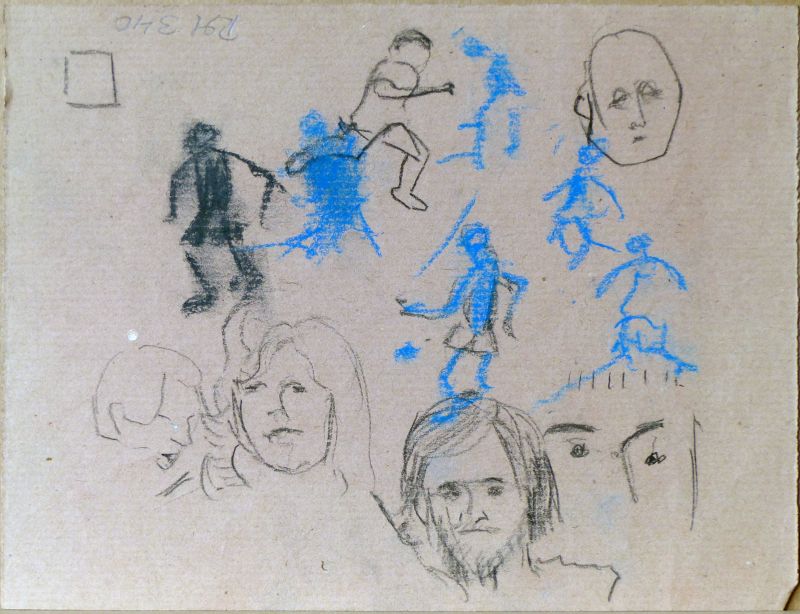 R91 340